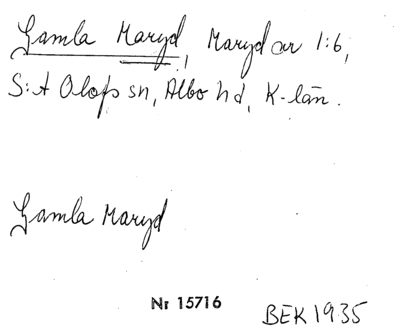 Gamla Maryd, Maryd or 1:6,
S:t Olofs sn, Albo hd, K-län.
Gamla Maryd
Nr 15716
BEK 1935